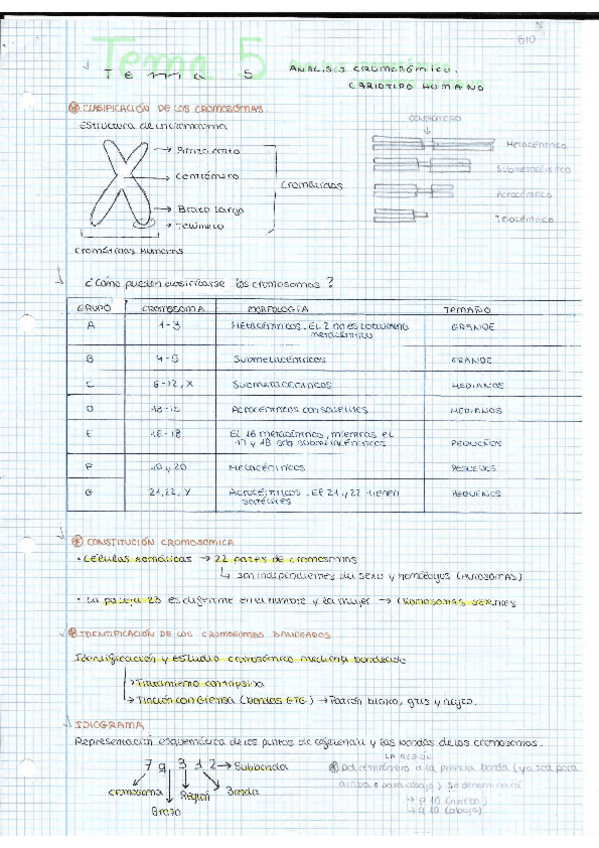 810
Tema 5
TEMA 5
ANÁLISIS CROMOSÓMICO.
CARIOTIPO HUMANO
CLASIFICACIÓN DE LOS CROMOSOMAS
Estructura de un cromosoma
Brazo corto
Centrómero
Brazo largo
Telómero
Cromátidas
Cromátidas Humanas
CENTRÓMERO
Metacéntrico
Submetacéntrico
Acrocéntrico
Telocéntrico
¿Cómo pueden clasificarse los cromosomas?
GRUPO CROMOSOMA MORFOLOGÍA TAMAÑO
A 1-3 Metacéntricos. El 2 no es totalmente metacéntrico GRANDE
B 4-5 Submetacéntricos GRANDE
C 6-12, X Submetacéntricos MEDIANOS
D 13-15 Acrocéntricos con satélites MEDIANOS
E 16-18 El 16 metacéntrico, mientras el 17 y 18 son submetacéntricos PEQUEÑOS
F 19 y 20 Metacéntricos PEQUEÑOS
G 21,22, Y Acrocéntricos. El 21 y 22 tienen satélites PEQUEÑOS
CONSTITUCIÓN CROMOSÓMICA
• Células somáticas → 22 pares de cromosomas
↳ son independientes del sexo y homólogos (AUTOSOMAS)
• La pareja 23 es diferente en el hombre y la mujer → CROMOSOMAS SEXUALES
IDENTIFICACIÓN DE LOS CROMOSOMAS BANDEADOS
Identificación y estudio cromosómico mediante bandeado
→ Tratamiento con tripsina
→ Tinción con Giemsa (bandas GTG) → Patrón blanco, gris y negro.
IDIOGRAMA
Representación esquemática de los puntos de referencia y las bandas de los cromosomas.
7 q 3 1 2 → Subbanda
Cromosoma
Brazo
Región
Banda
LA REGIÓN
Del centrómero a la primera banda (ya sea para
arriba o para abajo) se denominará
→ p 10 (arriba)
→ q 10 (abajo)